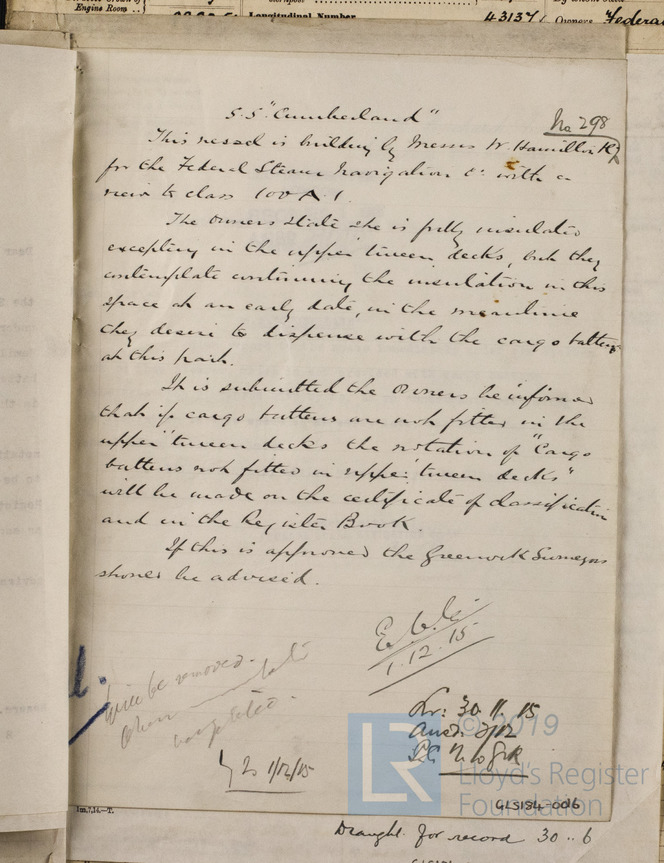 Engine Room
Longitudinal Number
43137
Owners Federal
S.S. "Cumberland"
No 298
This vessel is building by Messrs W. Hamilton & Co
for the Federal Steam Navigation Co. with a
view to class 100 A.1.
The Owners state she is fully insulated
excepting in the upper 'tween decks, but they
contemplate continuing the insulation in this
space at an early date, in the meantime
they desire to dispense with the cargo battens
at this part.
It is submitted the Owners be informed
that if cargo battens are not fitted in the
upper 'tween decks the notation of "Cargo
battens not fitted in upper 'tween decks"
will be made on the certificate of classification
and in the Register Book.
If this is approved the Greenock Surveyors
should be advised.
1.12.15
will be removed.
when
completed.
1/12/15
30.11.15
Ansd. 2/12
© 2019
LR
Lloyd's Register
Foundation
GLS184-0016
1m,7,14.—T.
Draught for record 30..6